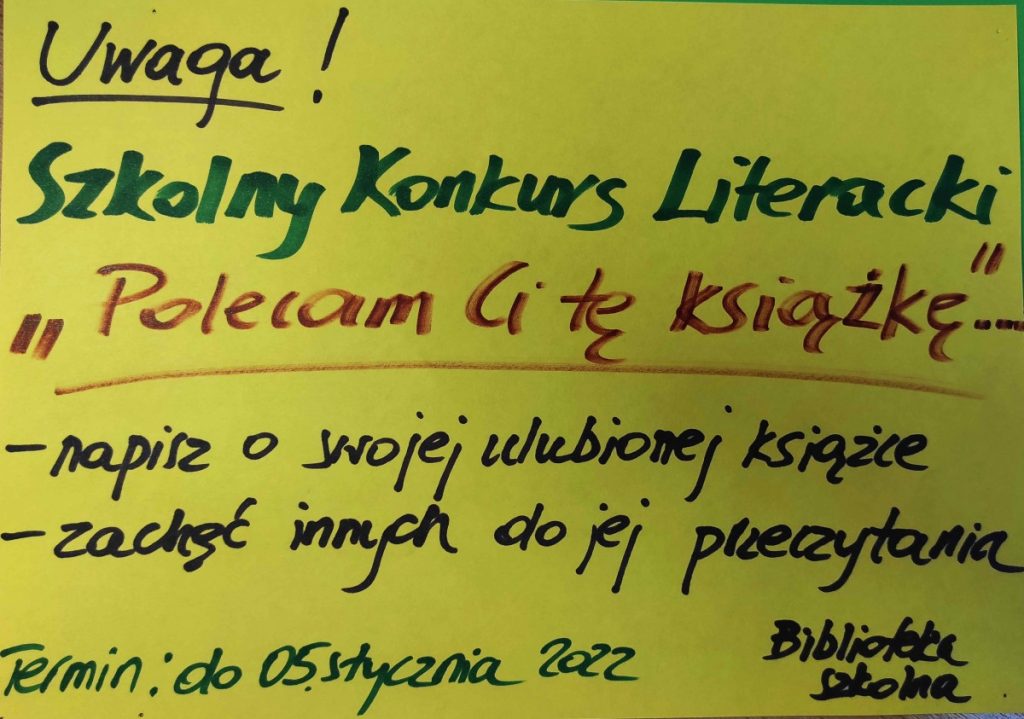 Uwaga !
Szkolny Konkurs Literacki
„Polecam Ci tę książkę...."
- napisz o swojej ulubionej książce
- zachęć innych do jej przeczytania
Termin: do 05.stycznia 2022
Biblioteka
szkolna